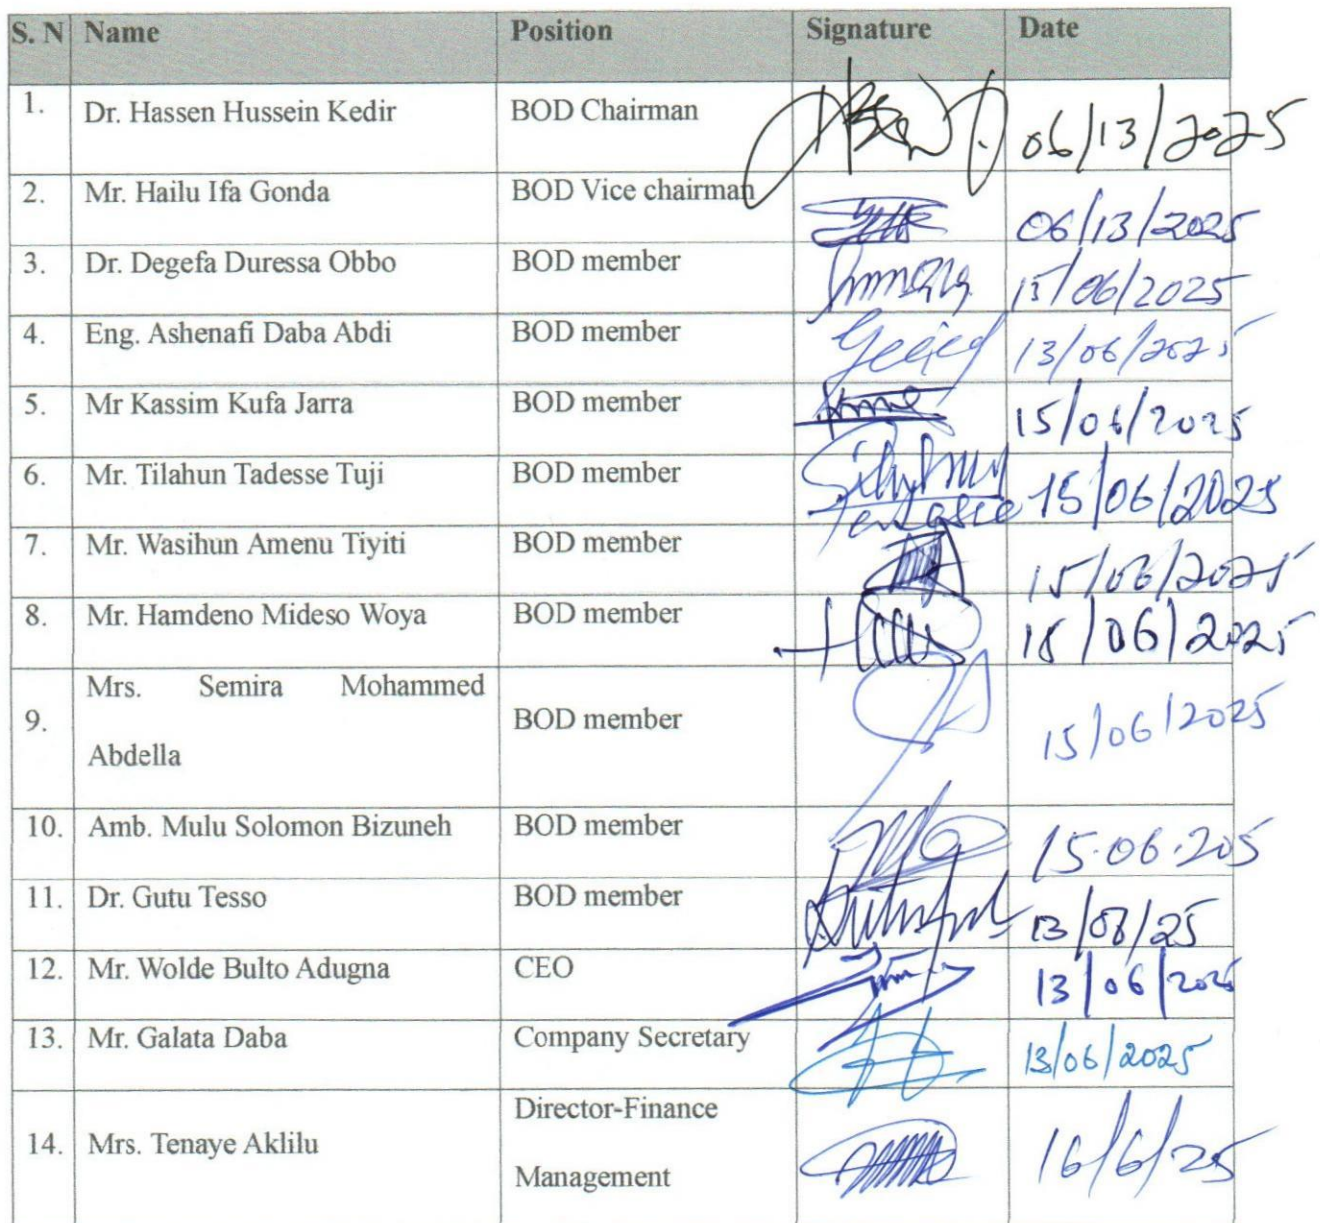 S. N Name Position Signature Date
1. Dr. Hassen Hussein Kedir BOD Chairman 06/13/2025
2. Mr. Hailu Ifa Gonda BOD Vice chairman 06/13/2025
3. Dr. Degefa Duressa Obbo BOD member 15/06/2025
4. Eng. Ashenafi Daba Abdi BOD member 13/06/2025
5. Mr Kassim Kufa Jarra BOD member 15/06/2025
6. Mr. Tilahun Tadesse Tuji BOD member 15/06/2025
7. Mr. Wasihun Amenu Tiyiti BOD member 15/06/2025
8. Mr. Hamdeno Mideso Woya BOD member 15/06/2025
9. Mrs. Semira Mohammed
Abdella BOD member 15/06/2025
10. Amb. Mulu Solomon Bizuneh BOD member 15.06.205
11. Dr. Gutu Tesso BOD member
12. Mr. Wolde Bulto Adugna CEO 13/06/2025
13. Mr. Galata Daba Company Secretary 13/06/2025
14. Mrs. Tenaye Aklilu Director-Finance
Management 16/6/25